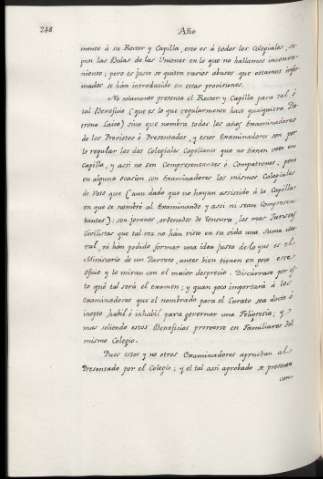 248 Año
mente à su Rector y Capilla, esto es à todos los Colegiales, se-
gun las Bulas de las Uniones en lo que no hallamos inconve-
niente; pero es justo se quiten varios abusos que estamos infor-
mados se hán introducido en estas provisiones.
No solamente presenta el Rector y Capilla para tal, ó
tal Beneficio (que es lo que regularmente hace qualquiera Pa-
trono Laico) sino que nombra todos los años Examinadores
de los Provistos ó Presentados, y estos Examinadores son por
lo regular los dos Colegiales Capellanes que no tienen voto en
Capilla, y assi no son Compresentantes ó Compatronos, pero
en alguna ocasion son Examinadores los mismos Colegiales
de voto que (aun dado que no hayan assistido à la Capilla
en que se nombró al Examinando y assi ni sean Compresen-
tantes) son jovenes, ordenados de Tonsura, los mas Juristas
Civilistas que tal vez no hán visto en su vida una Suma Mo-
ral, ni hán podido formar una idea justa de lo que es el
Ministerio de un Parroco, antes bien tienen en poco este
oficio y lo miran con el maior desprecio. Discurrase por es-
to qué tal será el examen; y quan poco importará à los
Examinadores que el nombrado para el Curato sea docto ó
inepto habil ó inhabil para governar una Feligresia; y
mas soliendo estos Beneficios proveerse en Familiares del
mismo Colegio.
Pues estos y no otros Examinadores aprueban al
Presentado por el Colegio; y el tal assi aprobado se presenta
con-